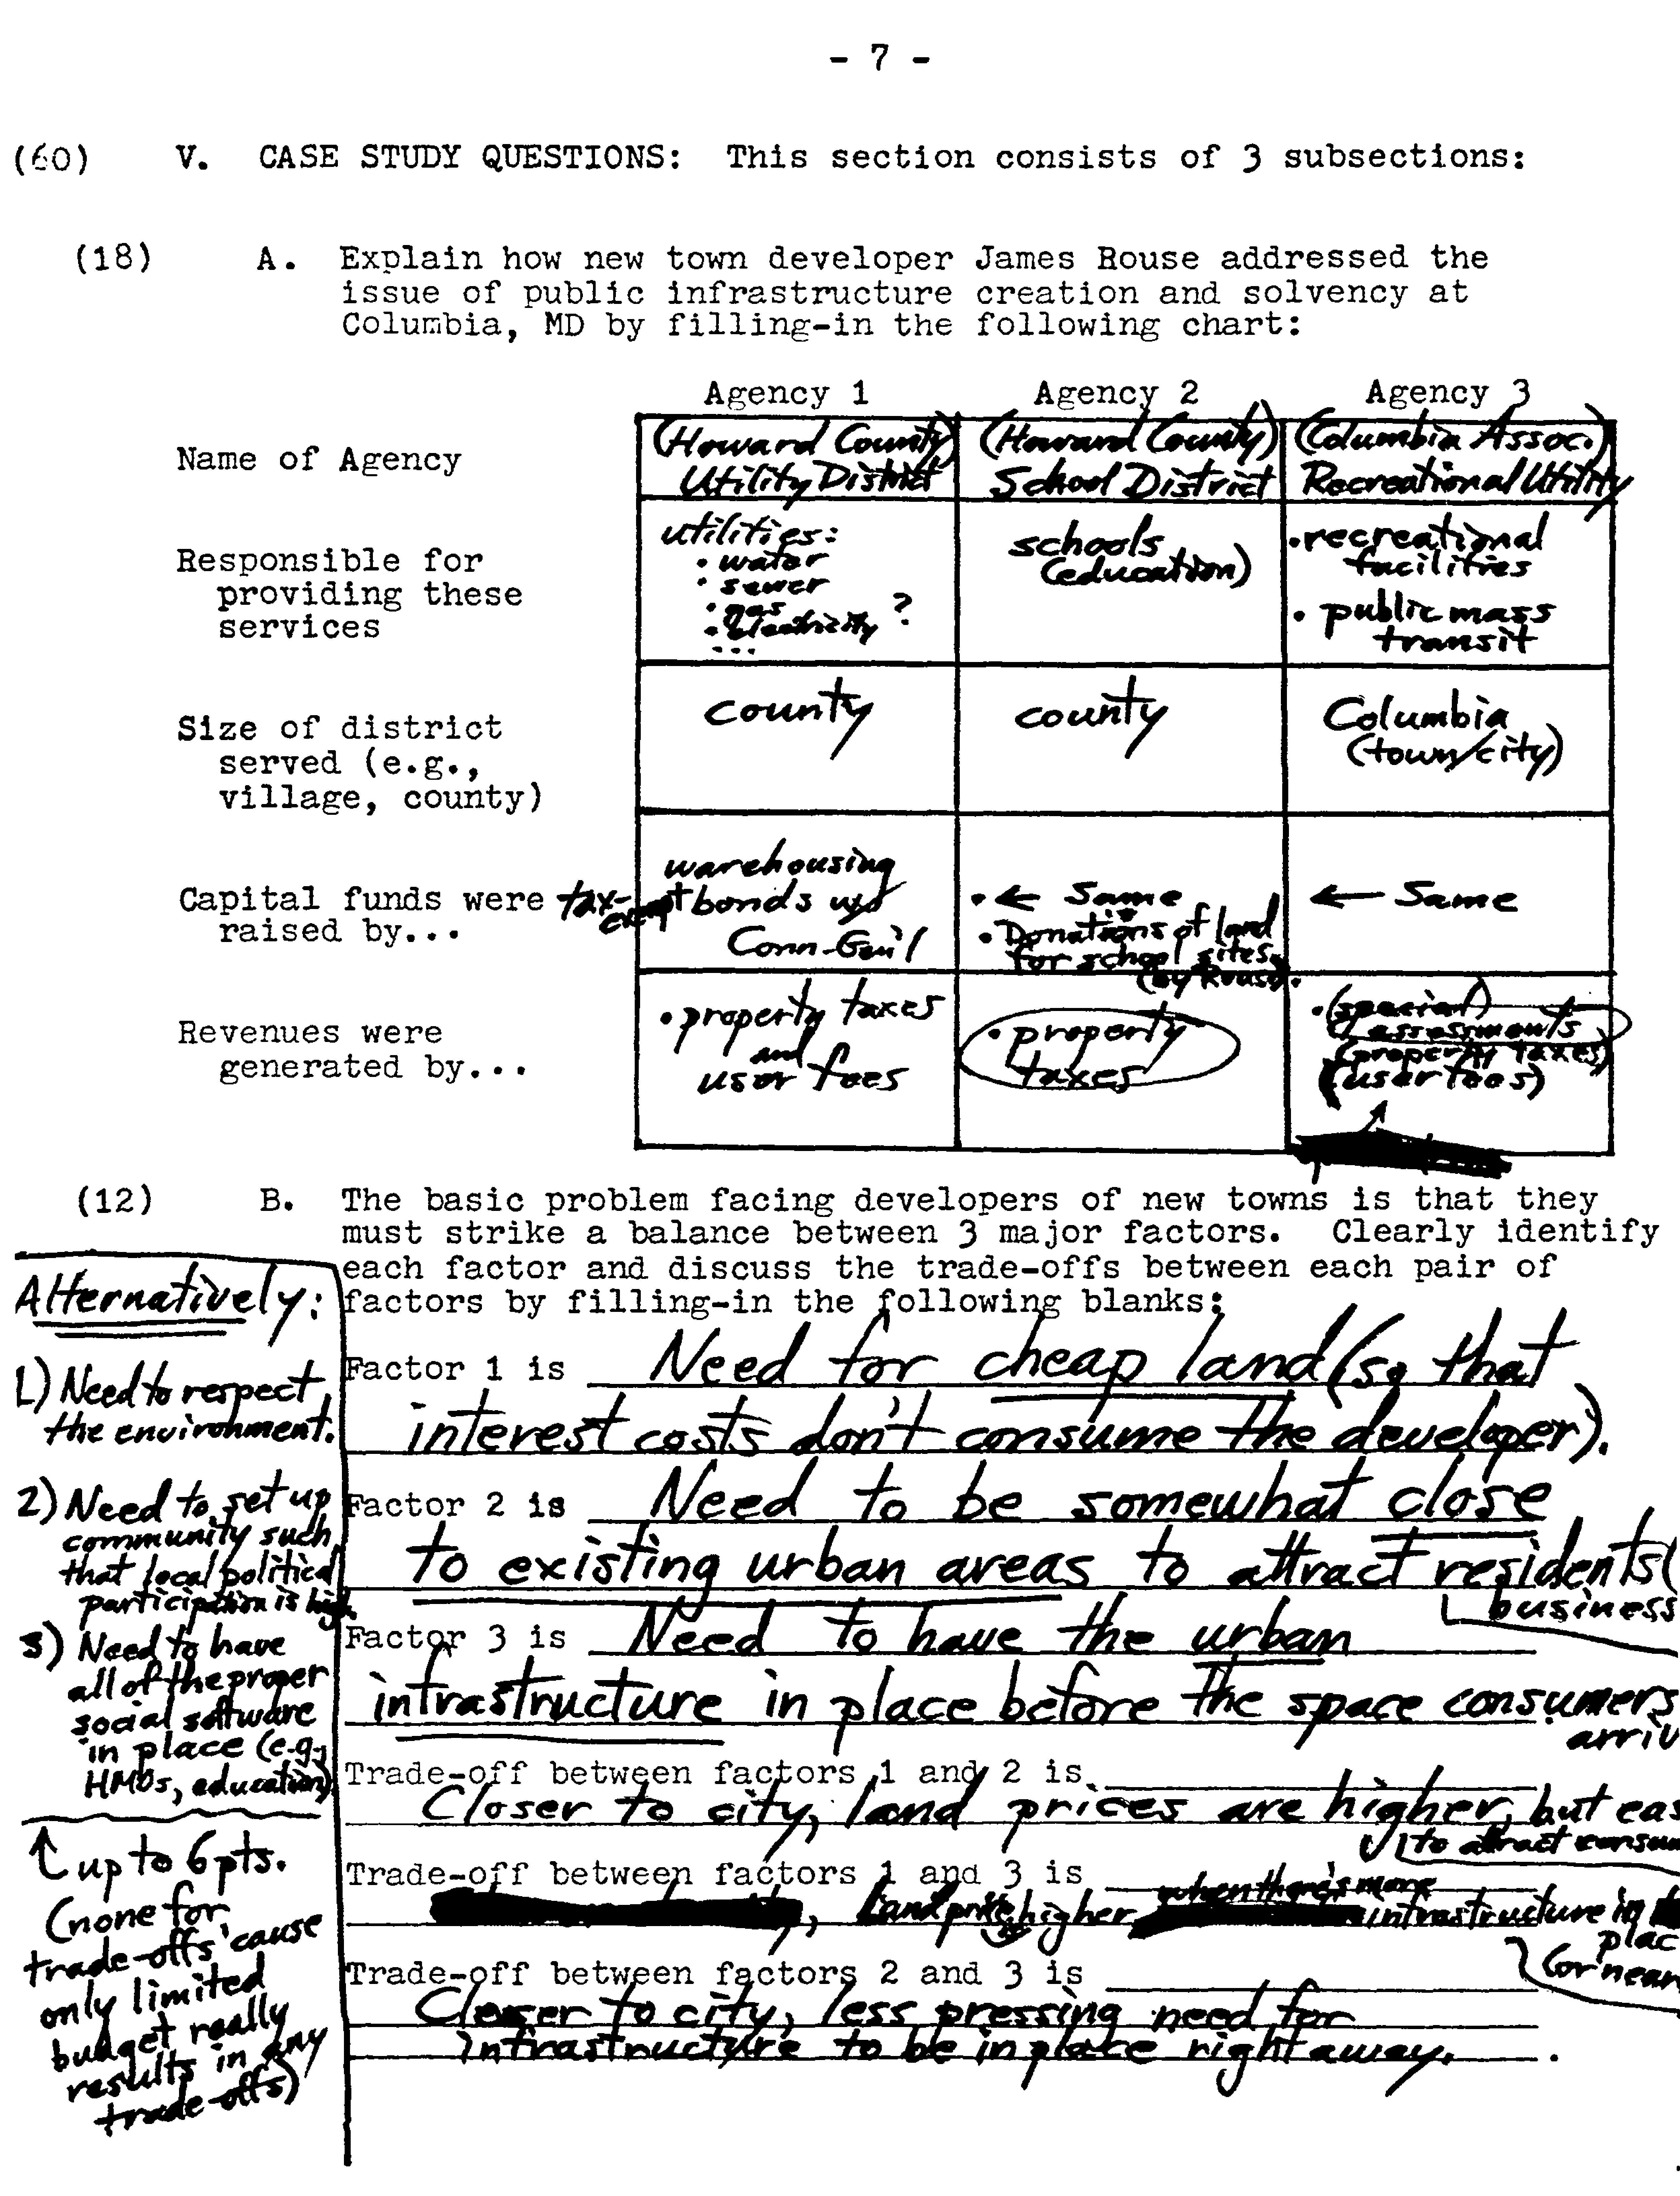 - 7 -
(60) V. CASE STUDY QUESTIONS: This section consists of 3 subsections:
(18) A. Explain how new town developer James Rouse addressed the
issue of public infrastructure creation and solvency at
Columbia, MD by filling-in the following chart:
Agency 1 Agency 2 Agency 3
Name of Agency
(Howard County)
Utility District
(Howard County)
School District
(Columbia Assoc.)
Recreational Utility
Responsible for
providing these
services
utilities:
• water
• sewer
• gas
• electricity ?
...
schools
(education)
• recreational
facilities
• public mass
transit
Size of district
served (e.g.,
village, county)
county
county
Columbia
(town/city)
Capital funds were
raised by...
warehousing
tax-exempt bonds w/
Conn-Gen'l
• ← Same
• Donations of land
for school sites
(by Rouse).
← Same
Revenues were
generated by...
• property taxes
and
user fees
• property
taxes
• (special)
assessments
(property taxes)
(user fees)
(12) B. The basic problem facing developers of new towns is that they
must strike a balance between 3 major factors. Clearly identify
each factor and discuss the trade-offs between each pair of
factors by filling-in the following blanks:
Factor 1 is Need for cheap land (so that
interest costs don't consume the developer).
Factor 2 is Need to be somewhat close
to existing urban areas to attract residents(
business
Factor 3 is Need to have the urban
infrastructure in place before the space consumers
arriv
Trade-off between factors 1 and 2 is
Closer to city, land prices are higher, but eas
to attract consum
Trade-off between factors 1 and 3 is
, Land price higher when there's more infrastructure in
plac
(or near
Trade-off between factors 2 and 3 is
Closer to city, less pressing need for
infrastructure to be in place right away. .
Alternatively:
1) Need to respect
the environment.
2) Need to set up
community such
that local political
participation is high.
3) Need to have
all of the proper
social software
in place (e.g.,
HMOs, education)
↑ up to 6 pts.
(none for
trade-offs 'cause
only limited
budget really
results in any
trade-offs)